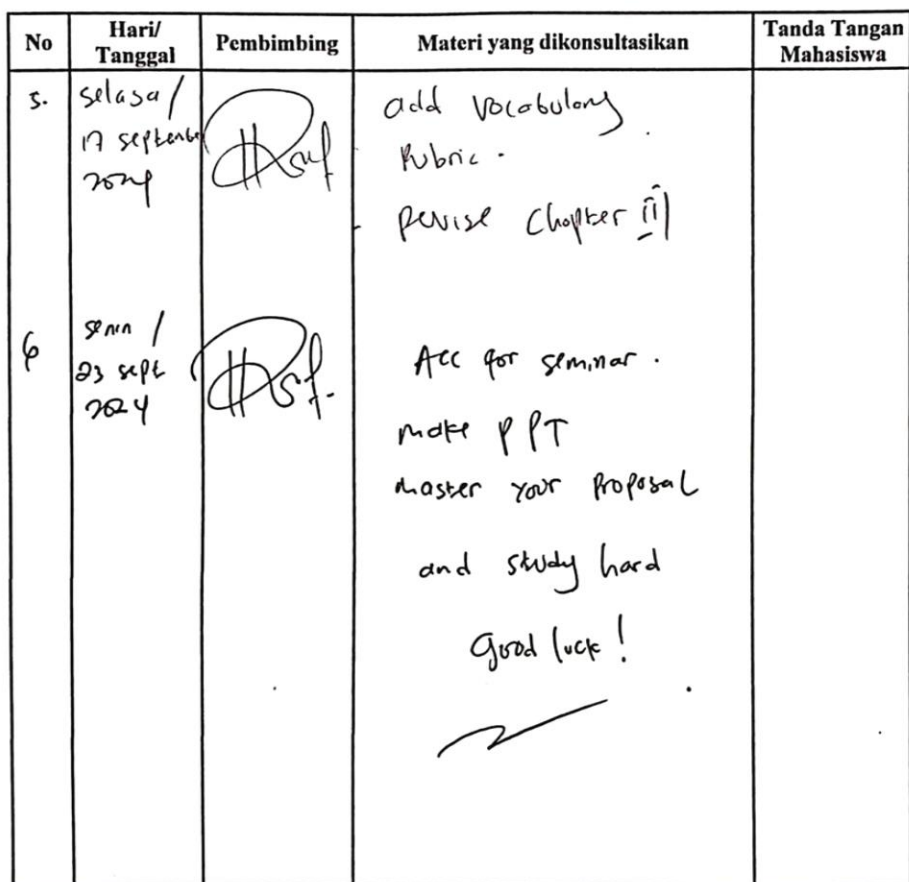 No
Hari/
Tanggal
Pembimbing
Materi yang dikonsultasikan
Tanda Tangan
Mahasiswa
5.
Selasa /
17 September
2024
add Vocabulary
Rubric.
- Revise Chapter III
6
Senin /
23 sept
2024
Acc for seminar.
make PPT
master your Proposal
and study hard
Good luck!